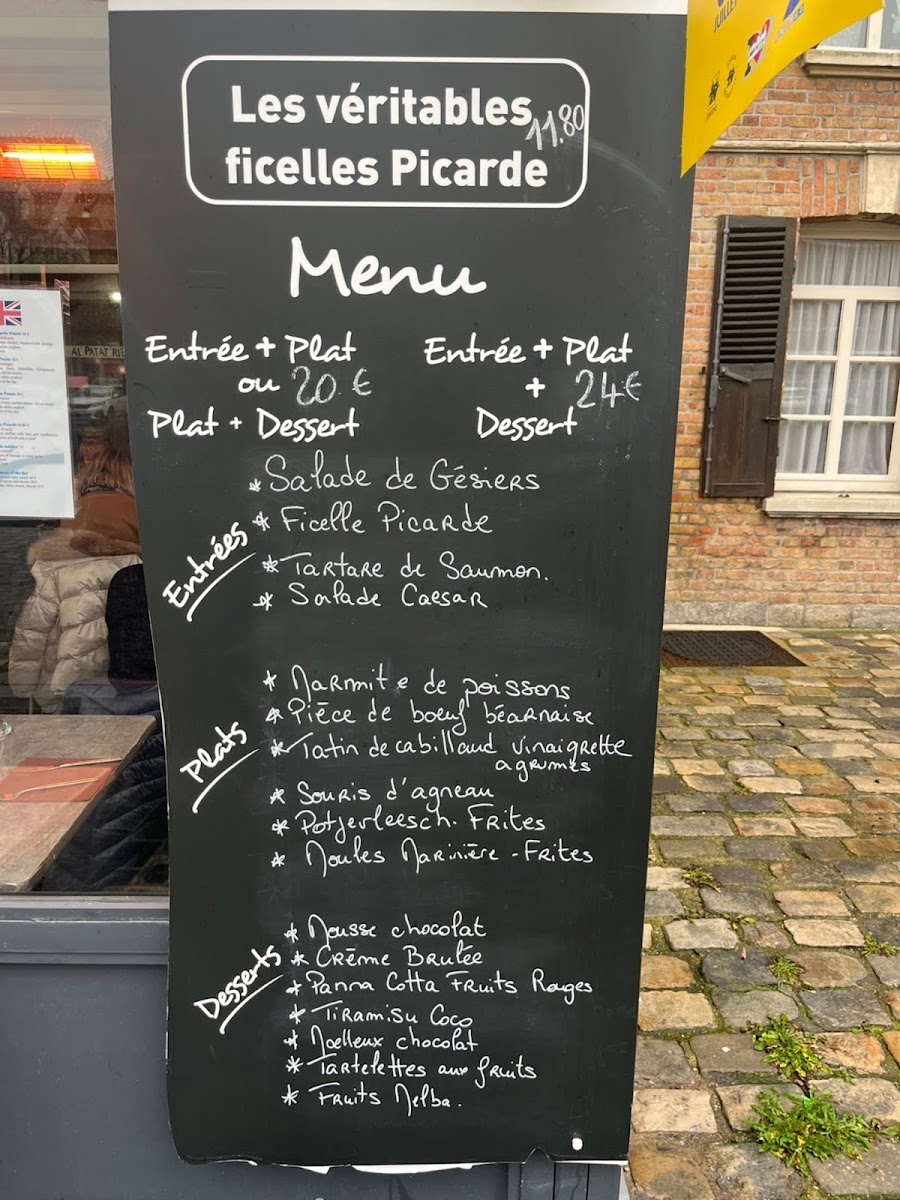 JUILLET
Les véritables
ficelles Picarde
11.80
Menu
Entrée + Plat
ou 20 €
Plat + Dessert
Entrée + Plat
+ 24€
Dessert
AL PATAT RIE
Entrées
* Salade de Gésiers
* Ficelle Picarde
* Tartare de Saumon.
* Salade Caesar
Plats
* Marmite de poissons
* Pièce de boeuf béarnaise
* Tatin de cabillaud vinaigrette
agrumes
* Souris d'agneau
* Potjevleesch. Frites
* Moules Marinière - Frites
Desserts
* Mousse chocolat
* Crème Brulée
* Panna Cotta Fruits Rouges
* Tiramisu Coco
* Moelleux chocolat
* Tartelettes aux fruits
* Fruits Melba.